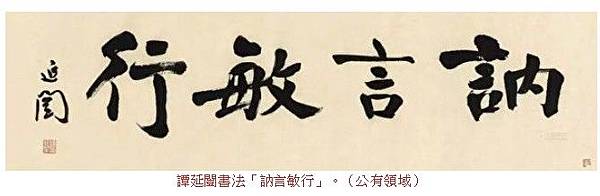 訥言敏行
延闓
譚延闓書法「訥言敏行」。（公有領域）